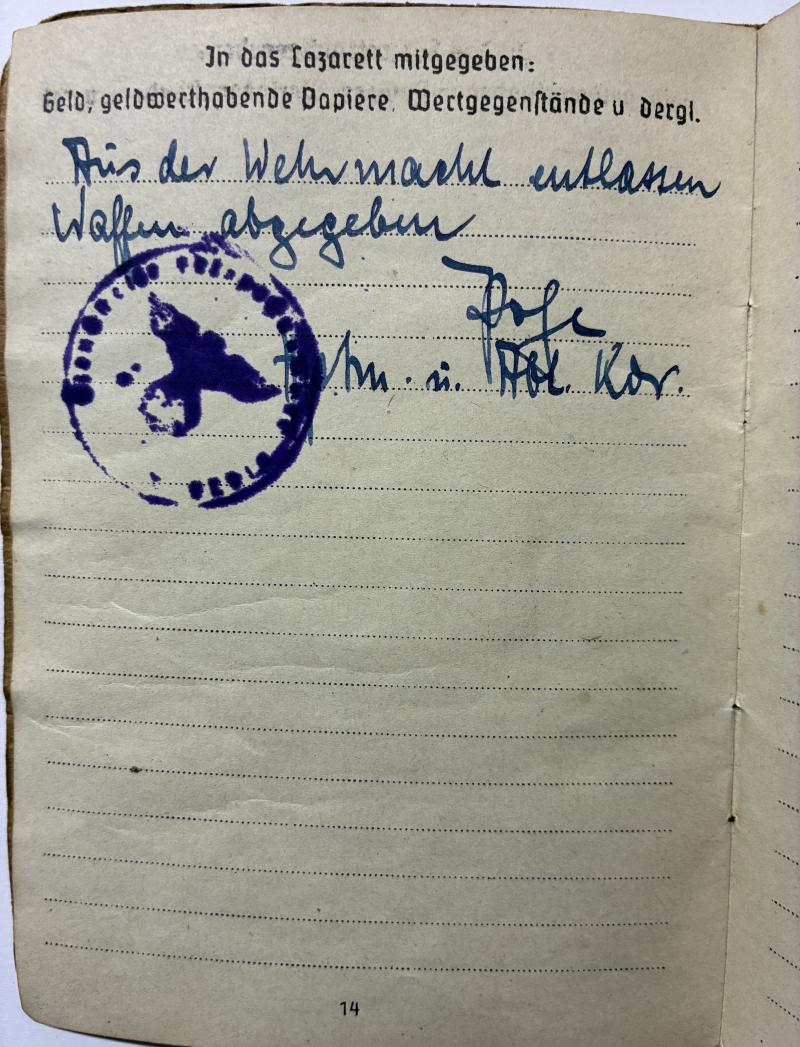 In das Lazarett mitgegeben:
Geld, geldwerthabende Papiere, Wertgegenstände u dergl.
Aus der Wehrmacht entlassen
Waffen abgegeben
u. Abt. Kdr.
14